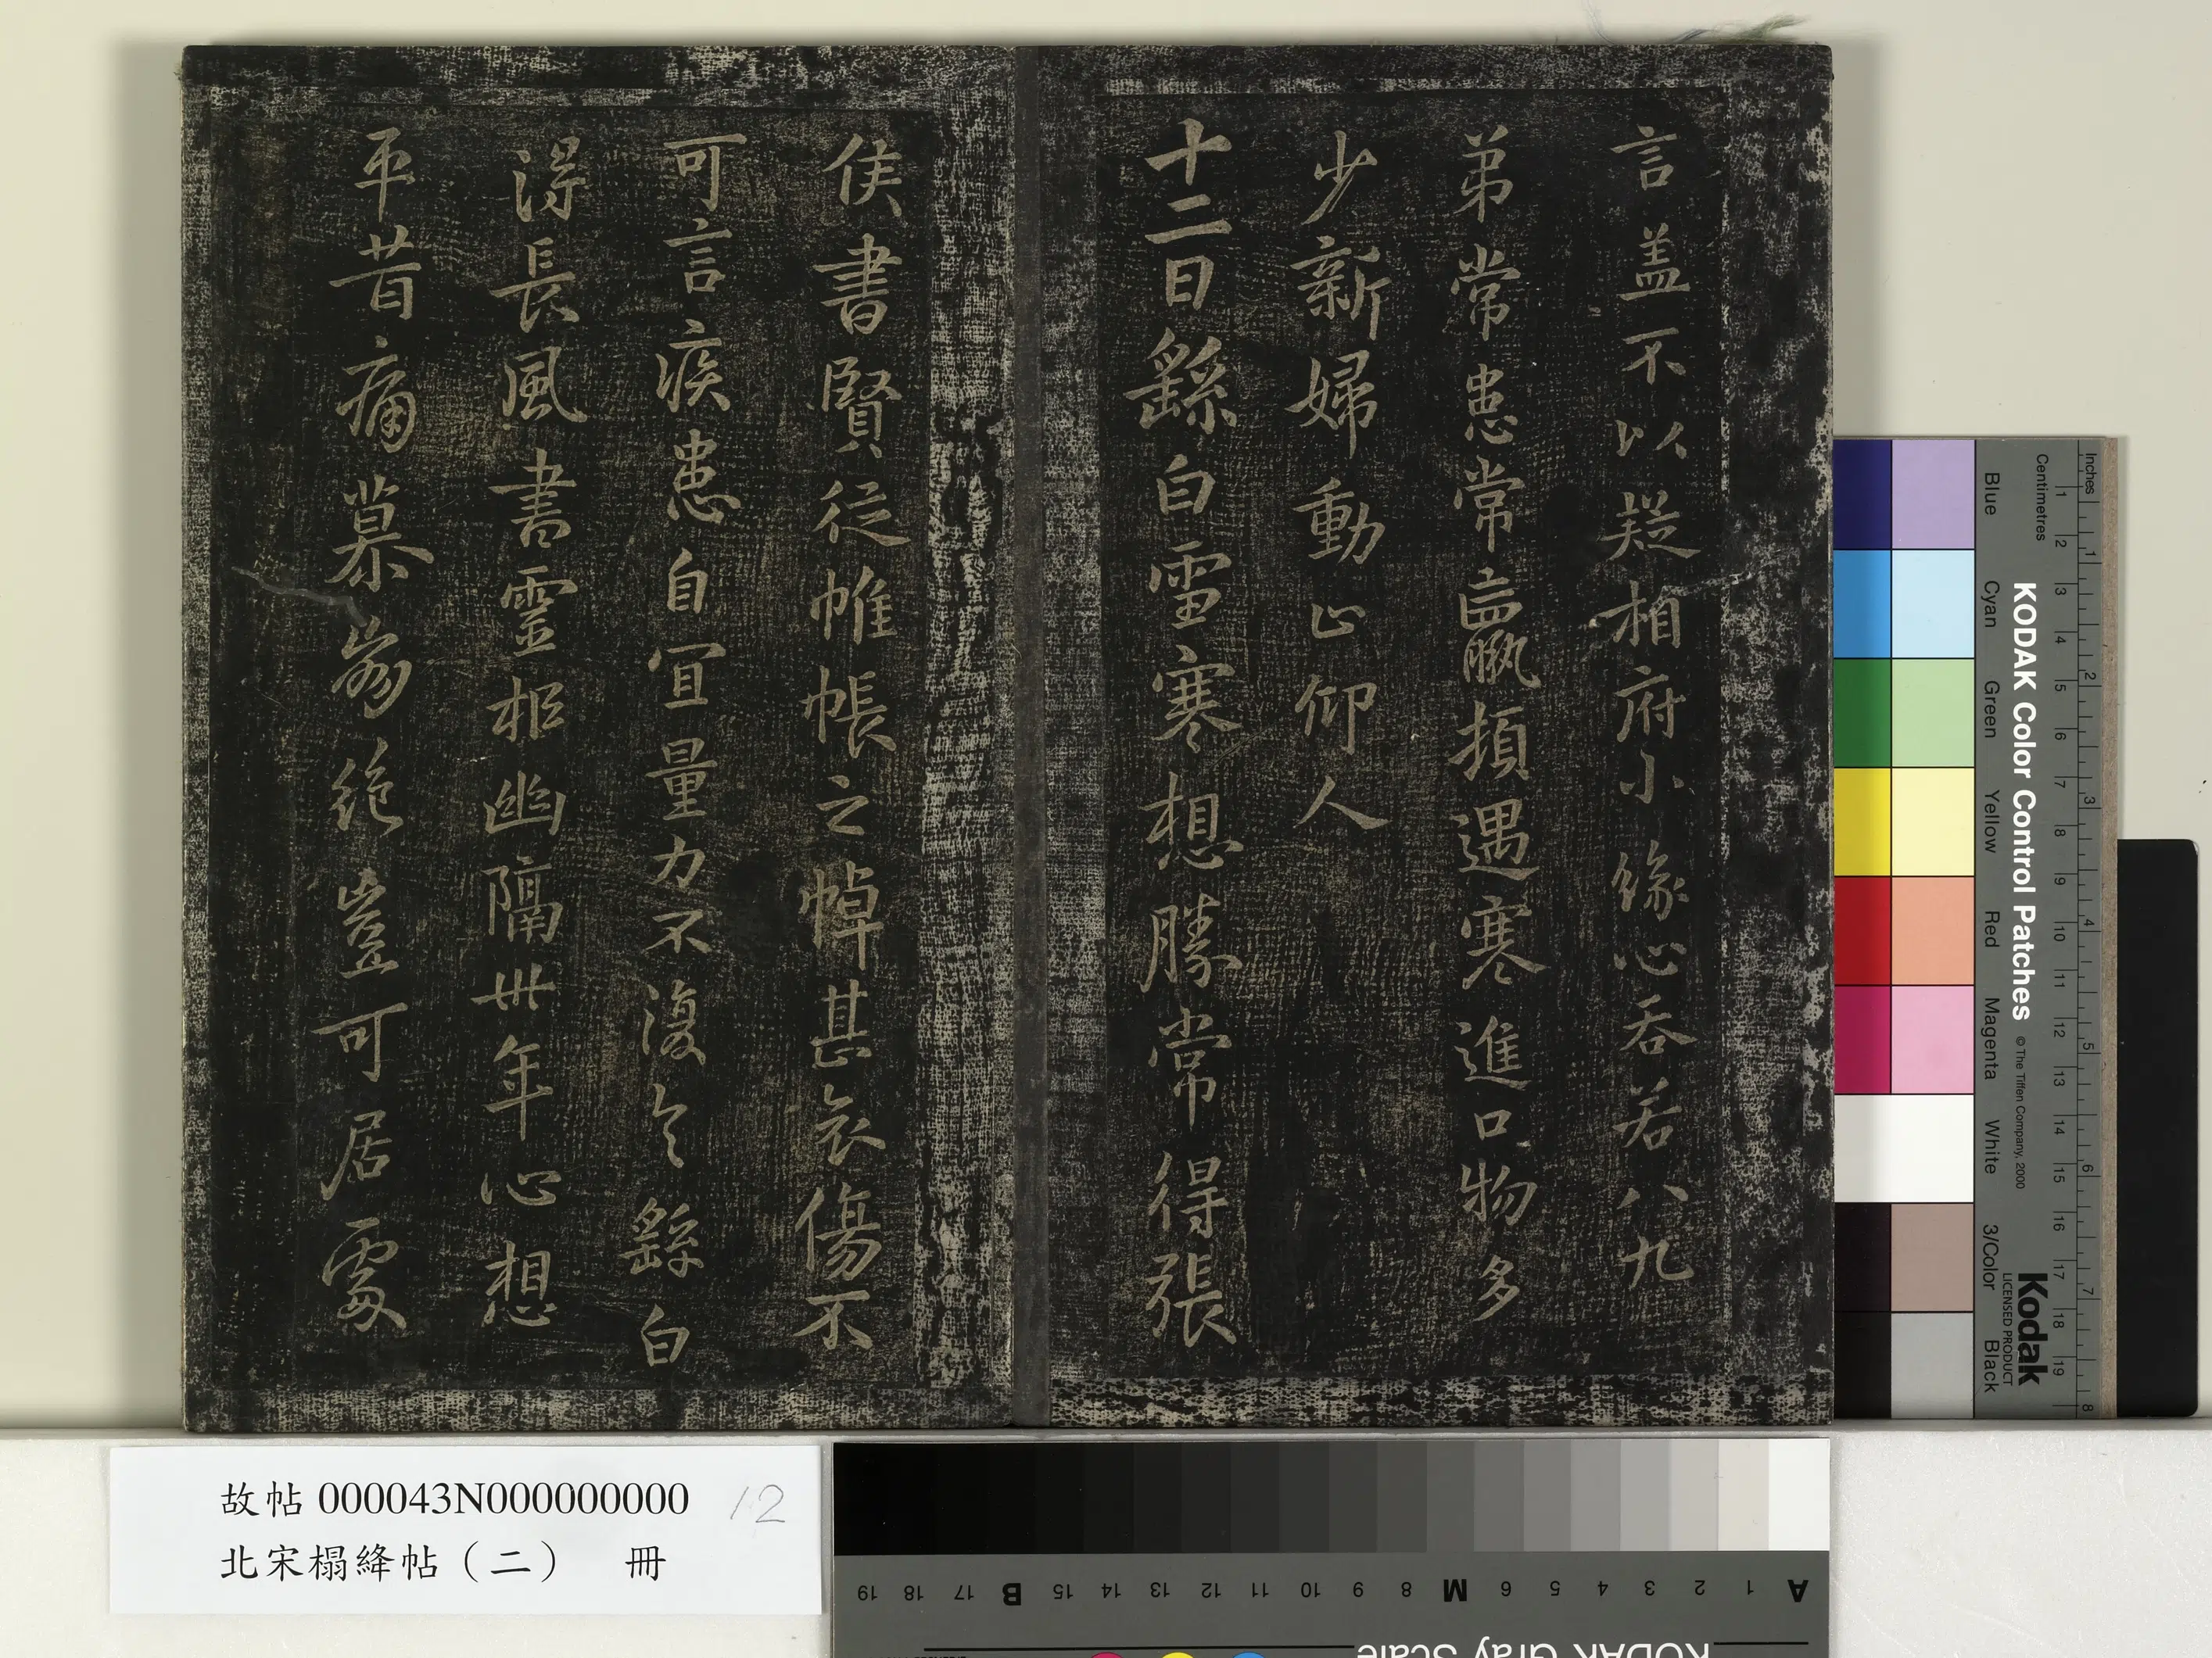 言盖不以疑相府小緣心吞若八九
弟常患常羸頓遇寒進口物多
少新婦動止仰人
十二日繇白雪寒想勝常得張
侯書賢從帷帳之悼甚哀傷不
可言疾患自宜量力不復具繇白
得長風書靈柩幽隔卅年心想
平昔痛慕崩絶豈可居處
故帖 000043N000000000 12
北宋榻絳帖（二） 冊
Inches 1 2 3 4 5 6 7 8
Centimetres 1 2 3 4 5 6 7 8 9 10 11 12 13 14 15 16 17 18 19
KODAK Color Control Patches © The Tiffen Company, 2000 Kodak LICENSED PRODUCT
Blue Cyan Green Yellow Red Magenta White 3/Color Black
A 1 2 3 4 5 6 M 8 9 10 11 12 13 14 15 B 17 18 19
KODAK Gray Scale